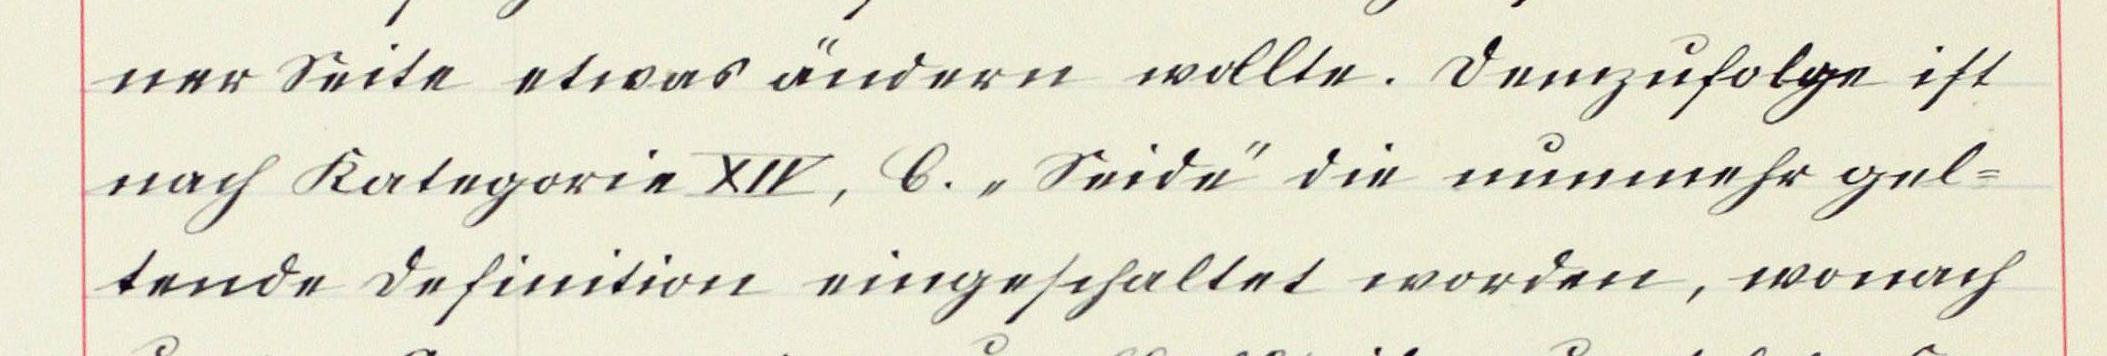 ner Seite etwas ändern wollte. Demzufolge ist
nach Kategorie XIV, C. „Seide“ die nunmehr gel=
tende Definition eingeschaltet worden, wonach